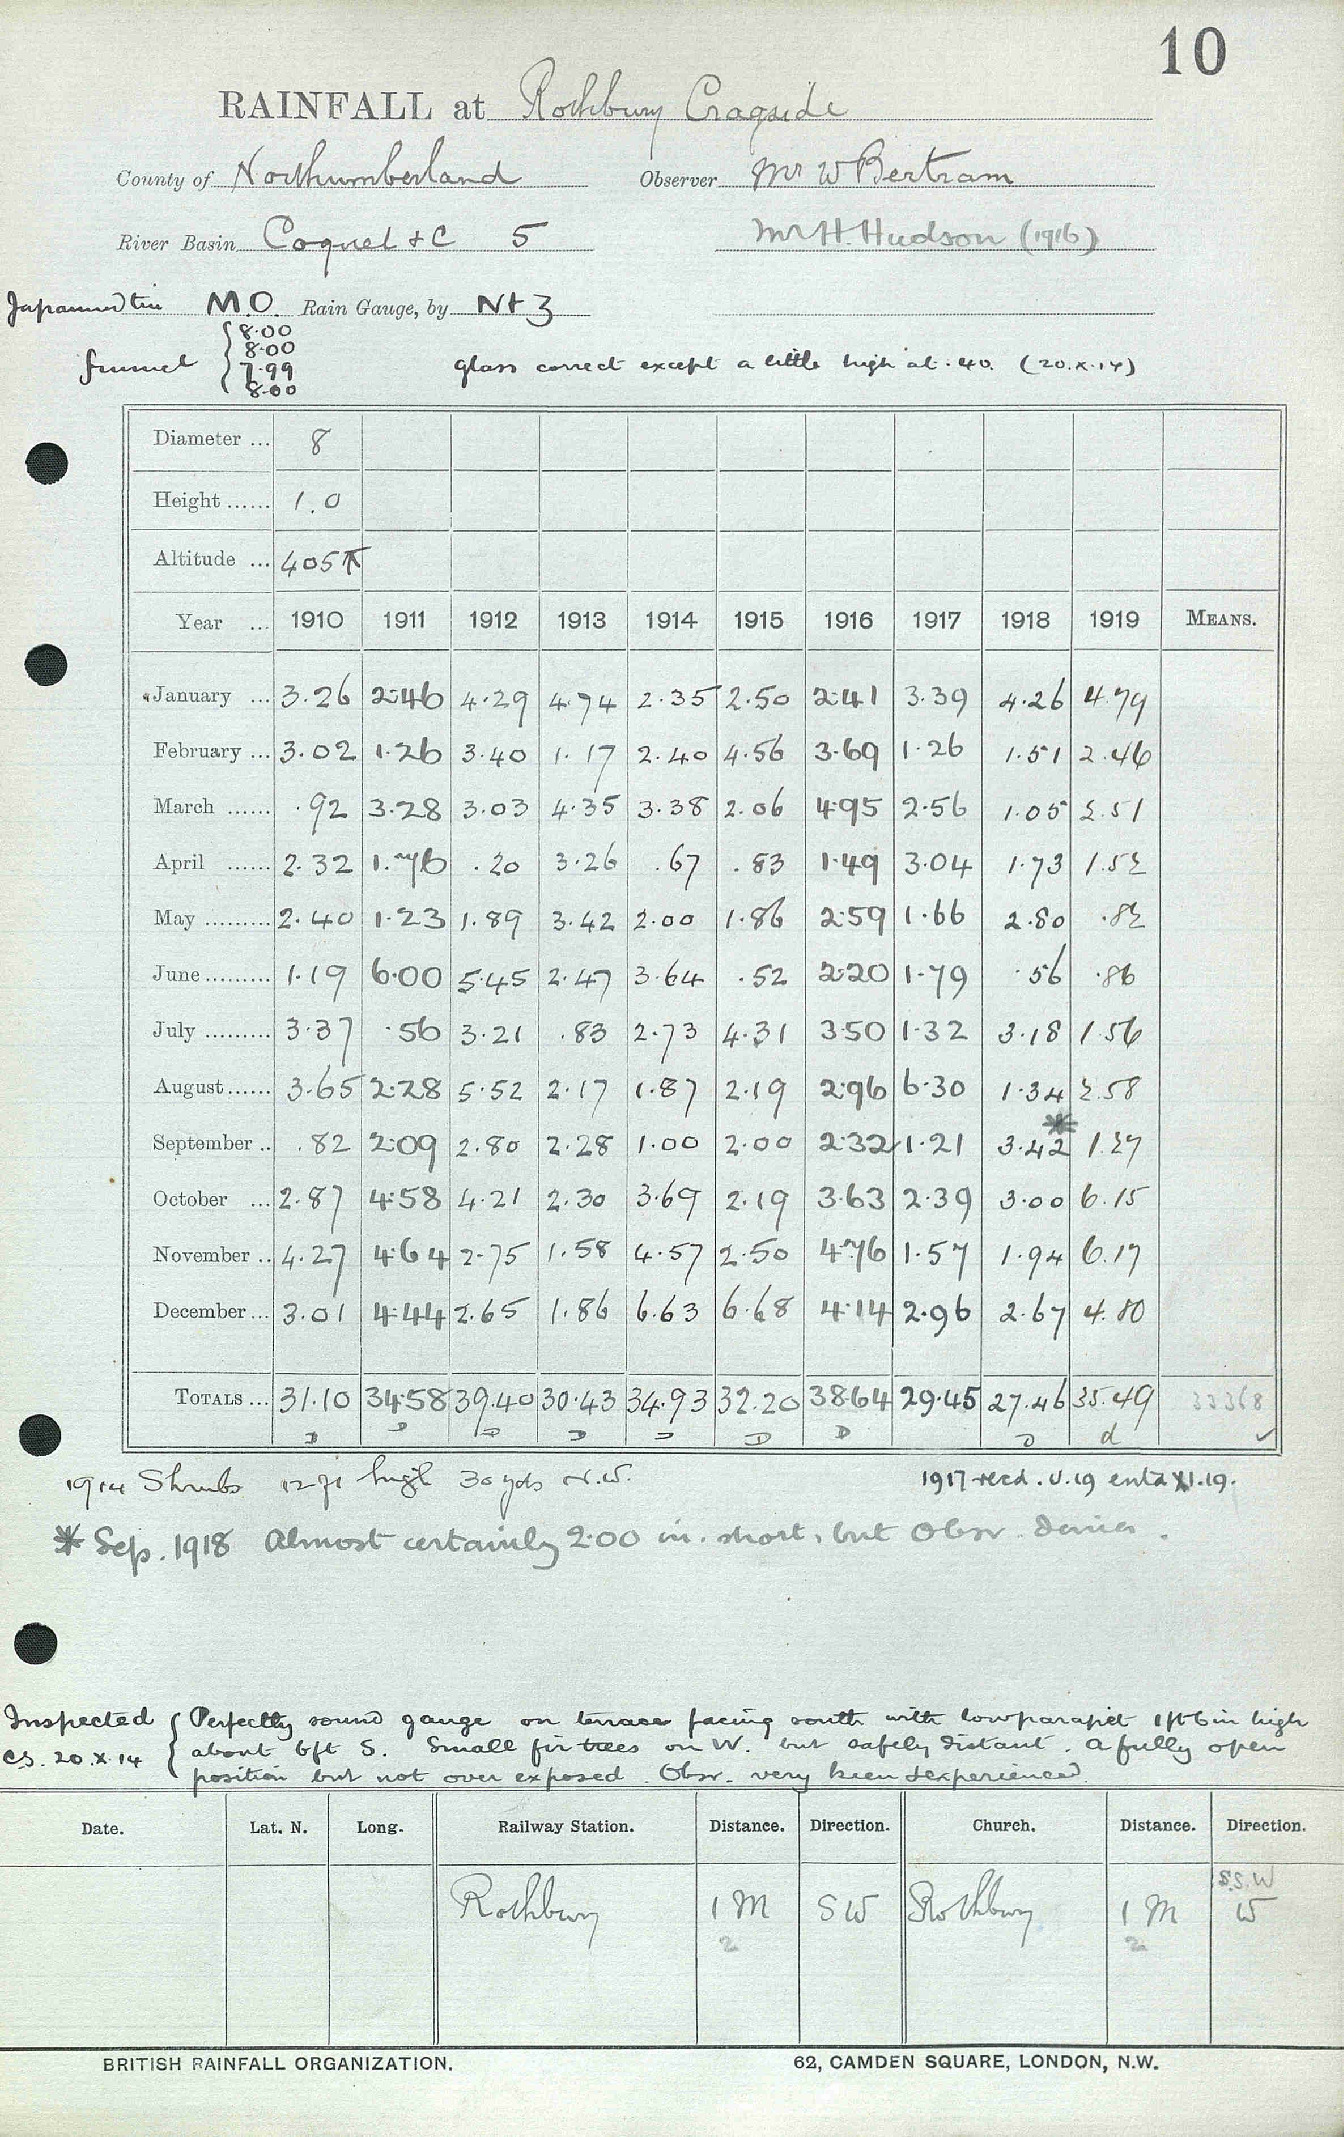 10
RAINFALL at Rothbury Cragside
County of Northumberland Observer Mr W Bertram
River Basin Coquet & C 5 Mr H. Hudson (1916)
Japanned tin M.O. Rain Gauge, by N & Z
funnel { 8.00
8.00
7.99
8.00
glass correct except a little high at .40. (20.X.14)
Diameter ... 8
Height ...... 1.0
Altitude ... 405
Year ... 1910 1911 1912 1913 1914 1915 1916 1917 1918 1919 MEANS.
January ... 3.26 2.46 4.29 4.74 2.35 2.50 2.41 3.39 4.26 4.79
February ... 3.02 1.26 3.40 1.17 2.40 4.56 3.69 1.26 1.51 2.46
March ...... .92 3.28 3.03 4.35 3.38 2.06 4.95 2.56 1.05 2.51
April ...... 2.32 1.76 .20 3.26 .67 .83 1.49 3.04 1.73 1.52
May ......... 2.40 1.23 1.89 3.42 2.00 1.86 2.59 1.66 2.80 .82
June ......... 1.19 6.00 5.45 2.47 3.64 .52 2.20 1.79 .56 .86
July ......... 3.37 .56 3.21 .83 2.73 4.31 3.50 1.32 3.18 1.56
August ...... 3.65 2.28 5.52 2.17 1.87 2.19 2.96 6.30 1.34 2.58
September .. .82 2.09 2.80 2.28 1.00 2.00 2.32 1.21 3.42* 1.27
October ... 2.87 4.58 4.21 2.30 3.69 2.19 3.63 2.39 3.00 6.15
November .. 4.27 4.64 2.75 1.58 4.57 2.50 4.76 1.57 1.94 6.17
December ... 3.01 4.44 2.65 1.86 6.63 6.68 4.14 2.96 2.67 4.80
TOTALS ... 31.10 34.58 39.40 30.43 34.93 32.20 38.64 29.45 27.46 35.49 33368
D D D D D D D D d ✓
1914 Shrubs 12 ft high 30 yds N.W. 1917 recd. V.19 entd XI.19.
* Sep. 1918 Almost certainly 2.00 in. short, but Obsr. denies.
Inspected { Perfectly sound gauge on terrace facing south with low parapet 1ft 6in high
C.S. 20.X.14 about 6ft S. Small fir trees on W. but safely distant. A fully open
position but not over exposed. Obsr. very keen & experienced
Date. Lat. N. Long. Railway Station. Distance. Direction. Church. Distance. Direction.
S.S.W
Rothbury 1 M SW Rothbury 1 M W
2 2
BRITISH RAINFALL ORGANIZATION. 62, CAMDEN SQUARE, LONDON, N.W.